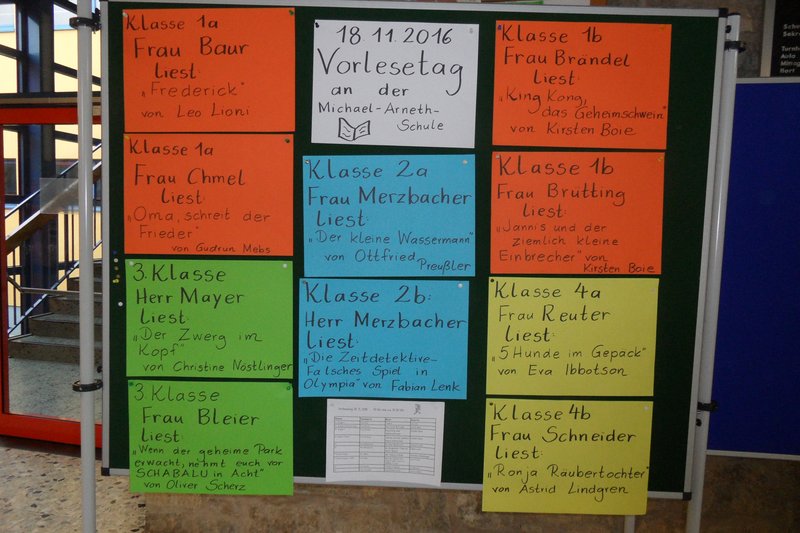 Klasse 1a
Frau Baur
liest:
„Frederick"
von Leo Lioni
18.11.2016
Vorlesetag
an der
Michael-Arneth-
Schule
Klasse 1b
Frau Brändel
liest:
„King Kong,
das Geheimschwein"
von Kirsten Boie
Klasse 1a
Frau Chmel
liest:
„Oma, schreit der
Frieder"
von Gudrun Mebs
Klasse 2a
Frau Merzbacher
liest:
„Der kleine Wassermann"
von Ottfried
Preußler
Klasse 1b
Frau Brütting
liest:
„Jannis und der
ziemlich kleine
Einbrecher" von
Kirsten Boie
3. Klasse
Herr Mayer
liest:
„Der Zwerg im
Kopf"
von Christine Nöstlinger
Klasse 2b:
Herr Merzbacher
liest:
„Die Zeitdetektive-
Falsches Spiel in
Olympia" von Fabian Lenk
Klasse 4a
Frau Reuter
liest:
„5 Hunde im Gepäck"
von Eva Ibbotson
3. Klasse
Frau Bleier
liest:
„Wenn der geheime Park
erwacht, nehmt euch vor
SCHABALU in Acht"
von Oliver Scherz
Klasse 4b
Frau Schneider
liest:
„Ronja Räubertochter"
von Astrid Lindgren